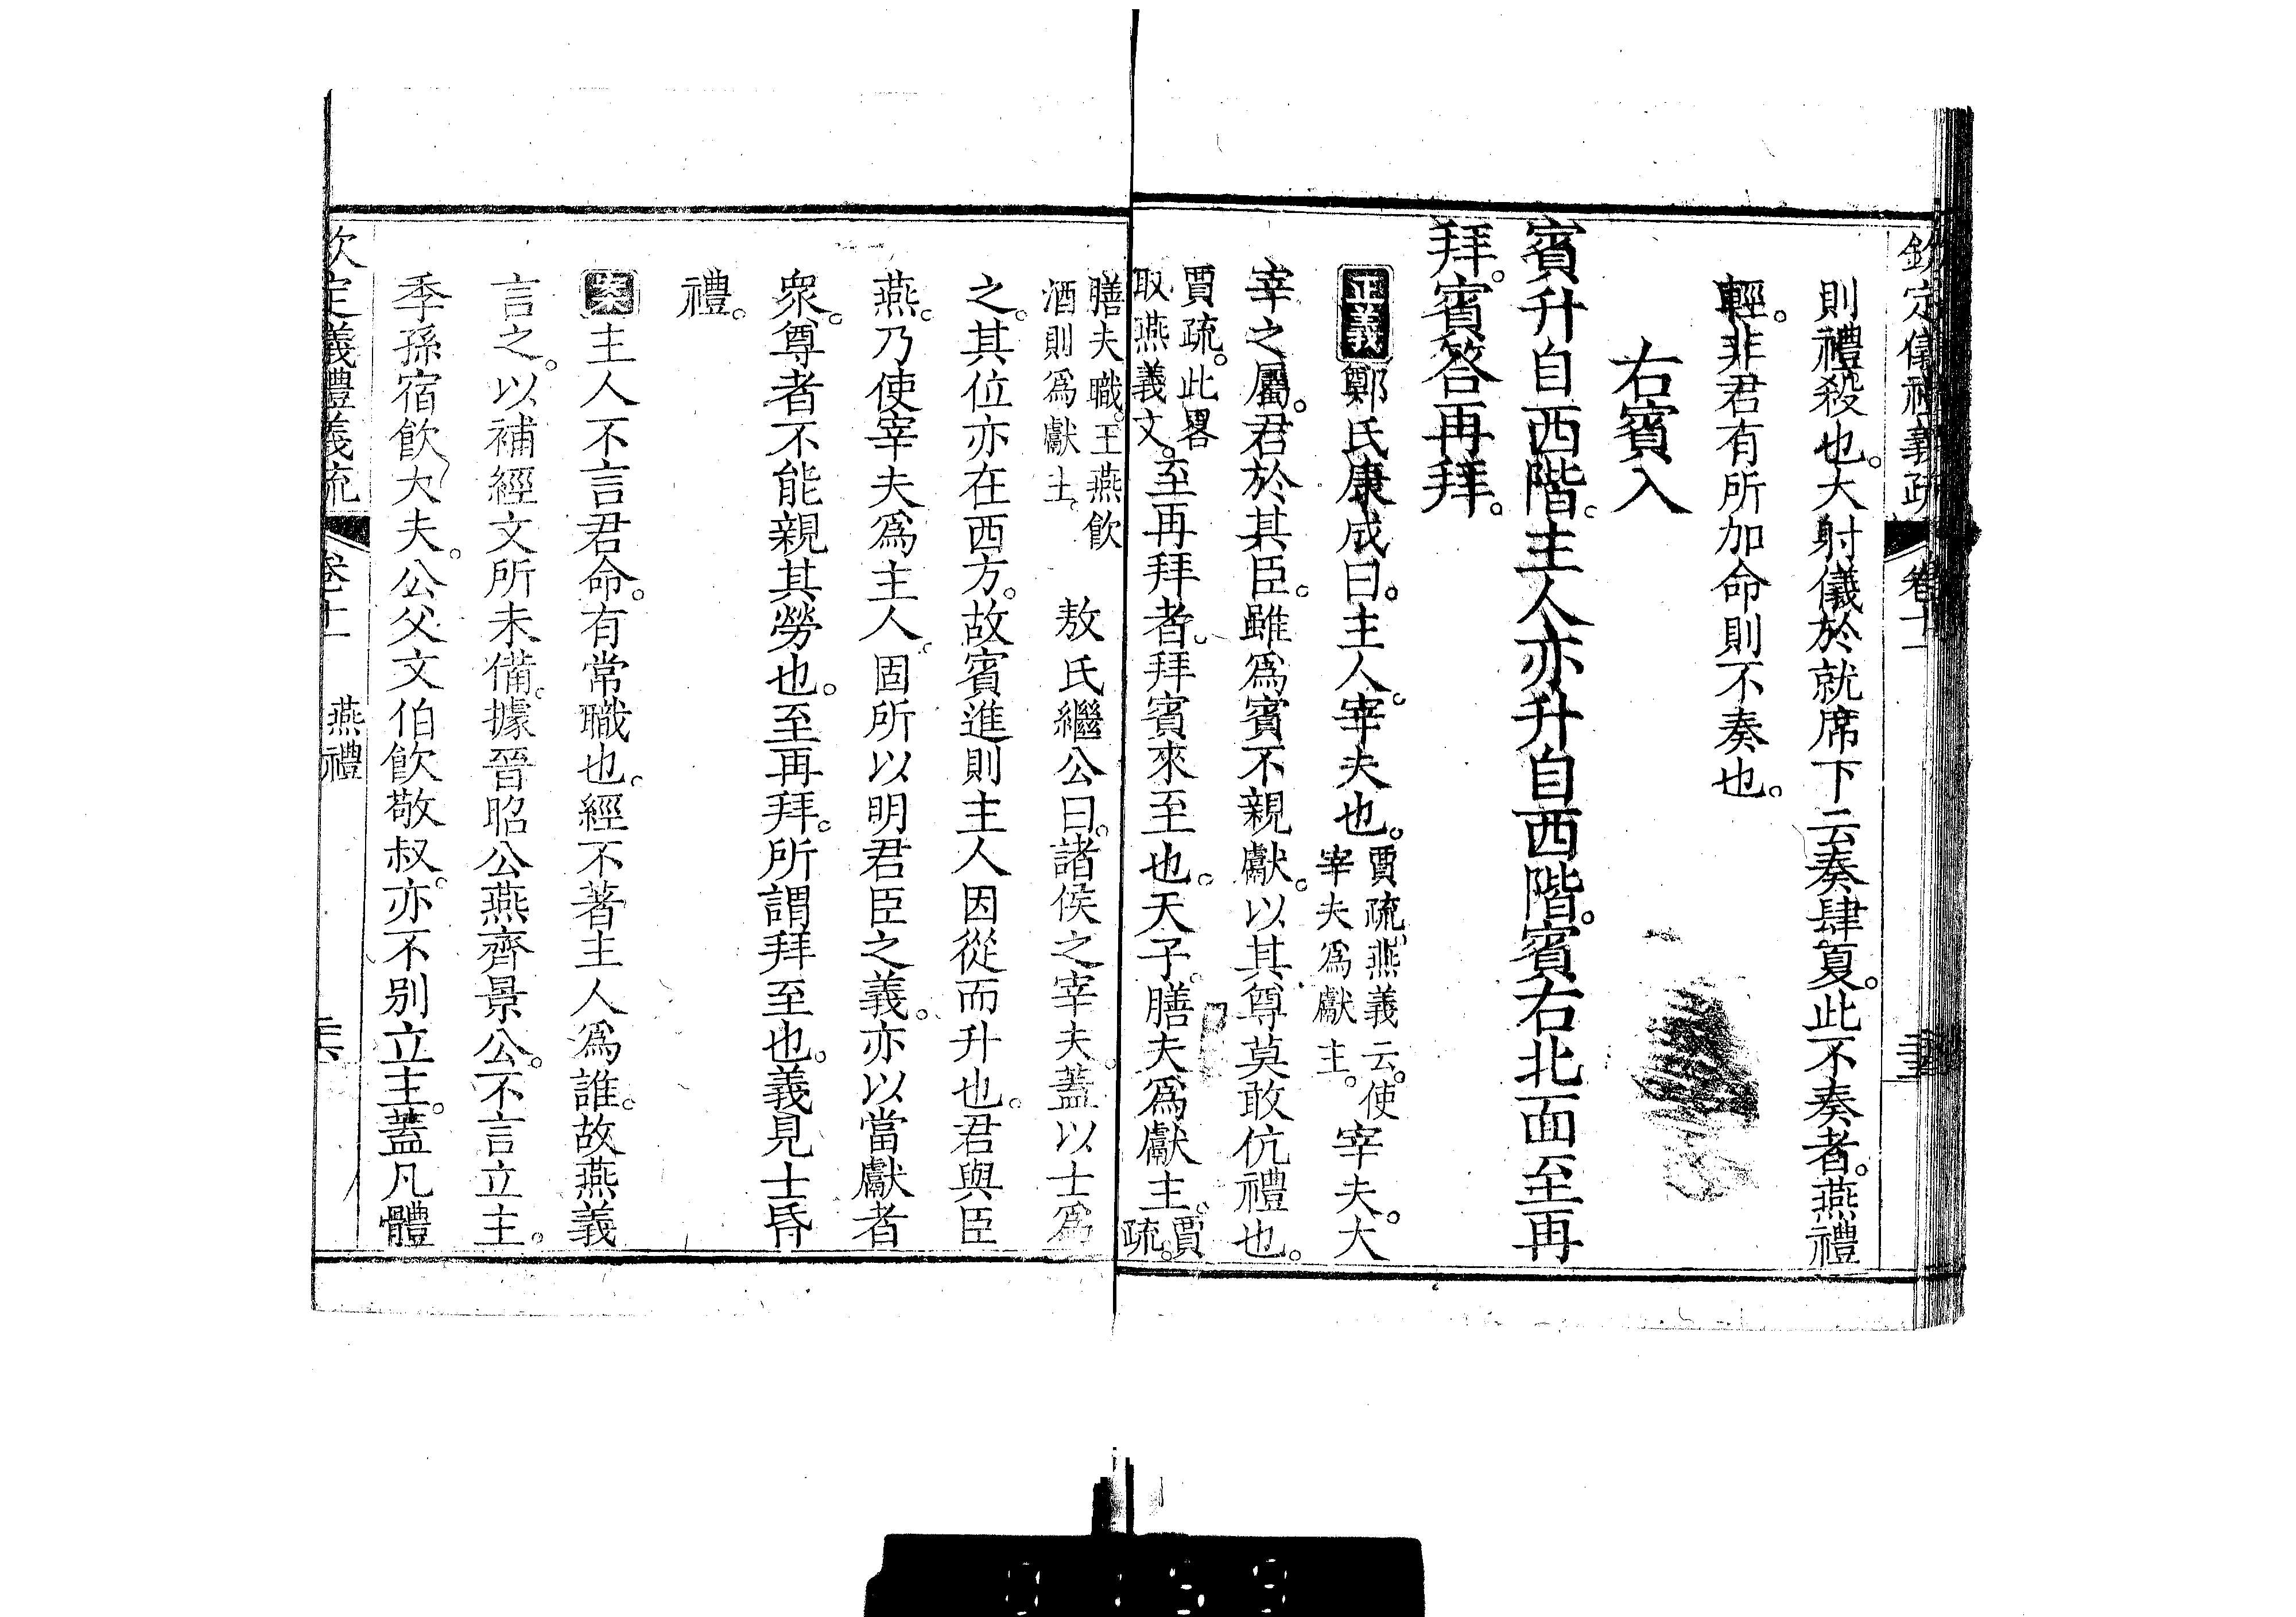 欽定儀禮義疏 卷十一
則禮殺也。大射儀於就席下云奏肆夏。此不奏者。燕禮
輕。非君有所加命則不奏也。
右賓入
賓升自西階。主人亦升自西階。賓右北面至再
拜。賓答再拜。
正義鄭氏康成曰。主人。宰夫也。賈疏。燕義云。使宰夫爲獻主。宰夫。大
宰之屬。君於其臣。雖爲賓不親獻。以其尊莫敢伉禮也。
賈疏。此畧取燕義文。至再拜者。拜賓來至也。天子。膳夫爲獻主。賈疏。
膳夫職。王燕飲酒則爲獻主。 敖氏繼公曰。諸侯之宰夫。蓋以士爲
之。其位亦在西方。故賓進則主人因從而升也。君與臣
燕。乃使宰夫爲主人。固所以明君臣之義。亦以當獻者
衆。尊者不能親其勞也。至再拜。所謂拜至也。義見士昏
禮。
案主人不言君命。有常職也。經不著主人爲誰。故燕義
言之。以補經文所未備。據晉昭公燕齊景公。不言立主。
季孫宿飲大夫。公父文伯飲敬叔。亦不別立主。蓋凡體
欽定儀禮義疏 卷十一 燕禮
0 153